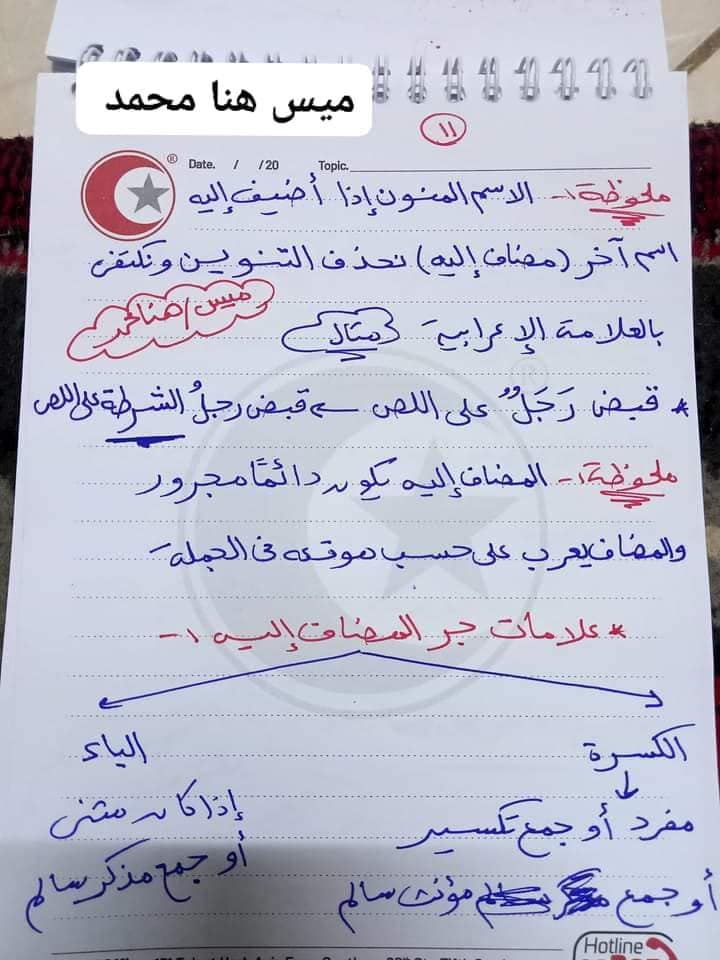 ميس هنا محمد
١١
Date. / /20 Topic.
ملحوظة:- الاسم المنون إذا أضيف إليه
اسم آخر (مضاف إليه) نحذف التنوين ونكتفى
بالعلامة الإعرابية مثال
ميس/هنا محمد
* قبض رَجُلٌ على اللص ← قبض رجلُ الشرطة على اللص
ملحوظة:- المضاف إليه يكون دائمًا مجرور
والمضاف يعرب على حسب موقعه فى الجملة
* علامات جر المضاف إليه :-
الكسرة الياء
مفرد أو جمع تكسير إذا كان مثنى
أو جمع مؤنث سالم أو جمع مذكر سالم
Hotline